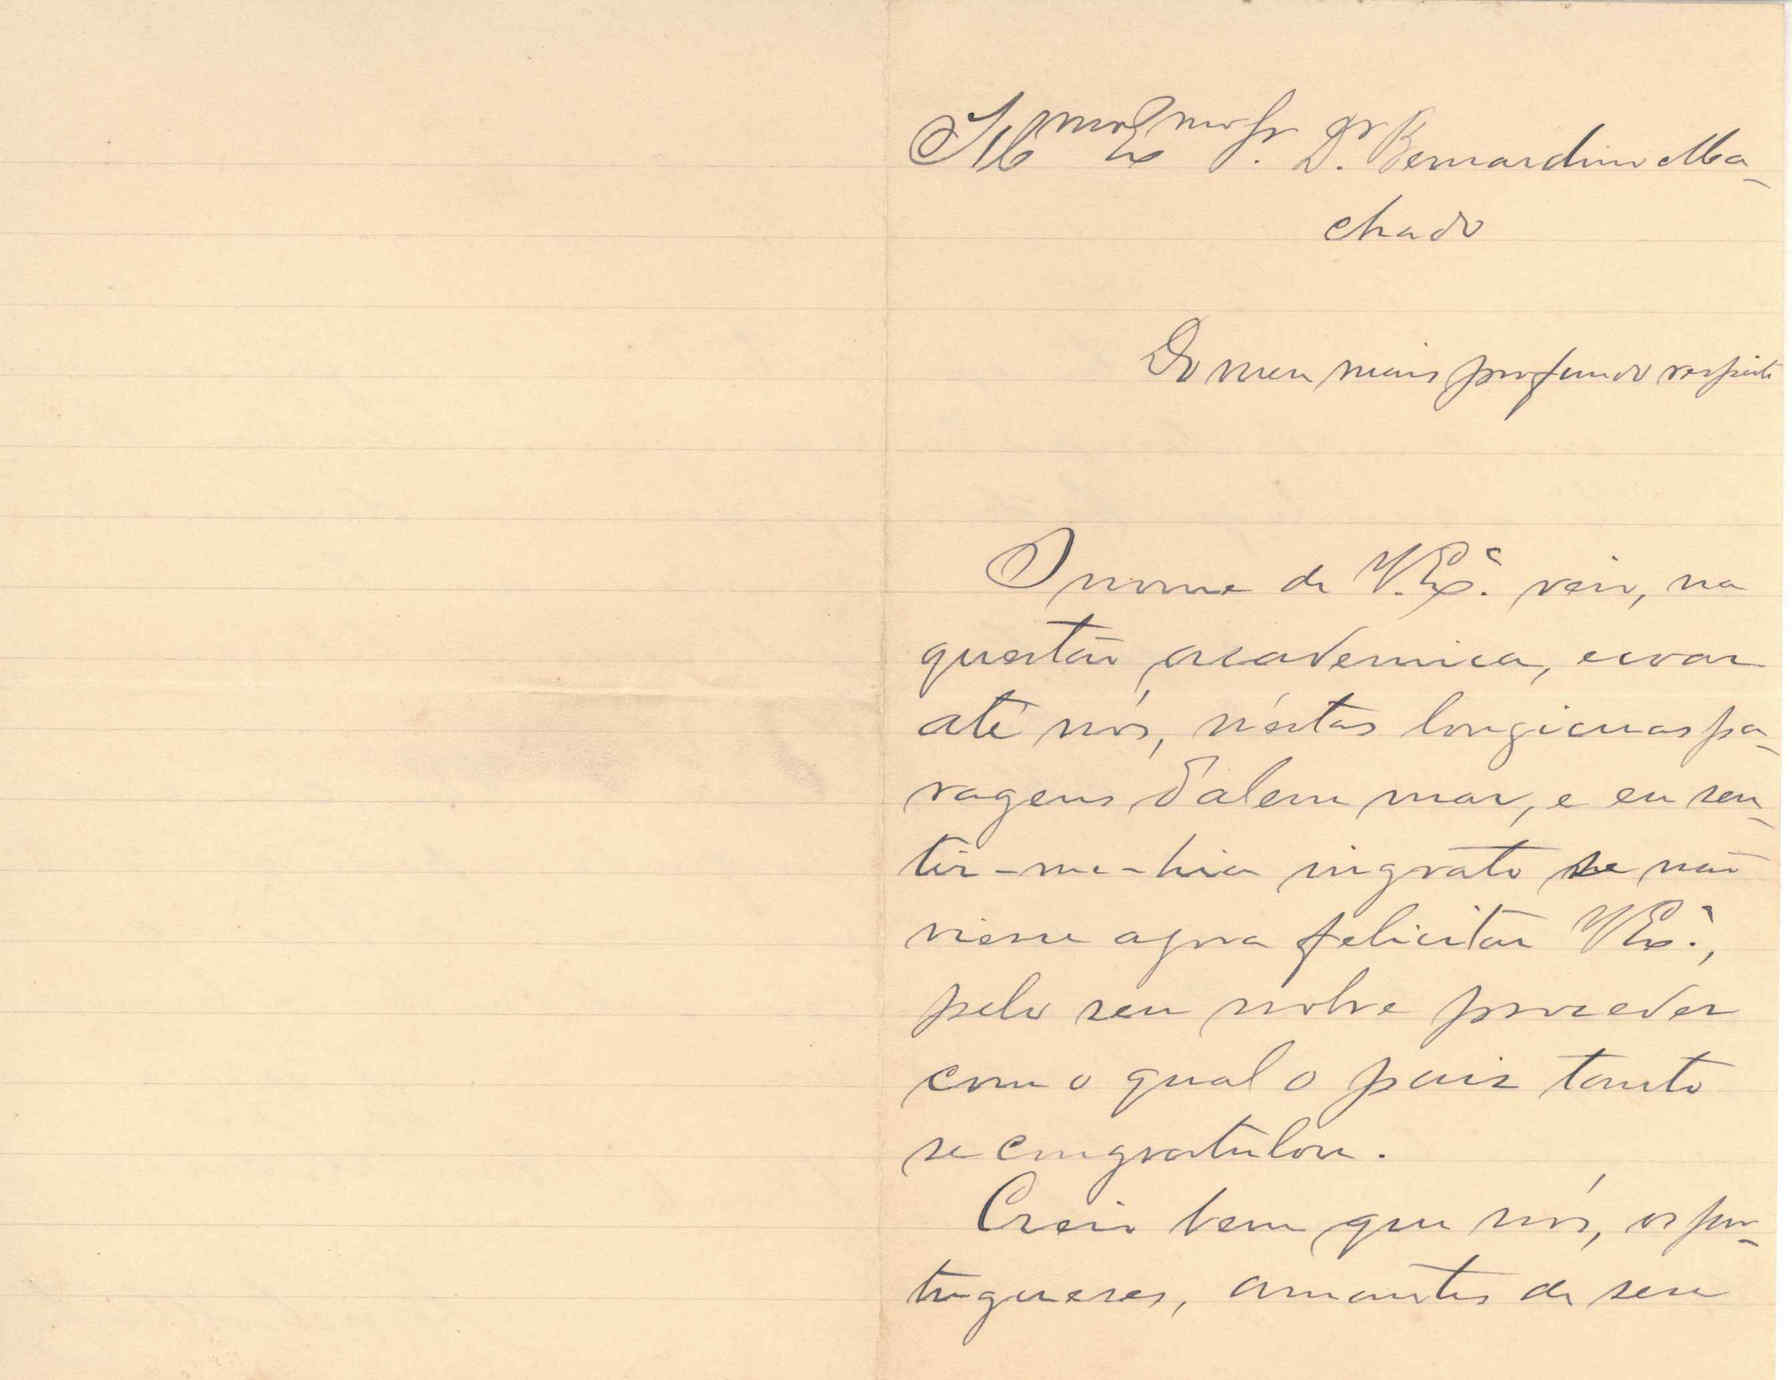 Illmo Exmo Sr. Dr. Bernardino Ma-
chado
Do meu mais profundo respeito
O nome de V. Exª. veio, na
questão academica, ecoar
até nós, n'éstas longicuas pa-
ragens d'alem mar, e eu sen-
tir-me-hia ingrato se não
viesse agora felicitar V Exª.,
pelo seu nobre proceder
com o qual o paiz tanto
se congratulou.
Creio bem que nós, os por-
tuguezes, amantes de seu